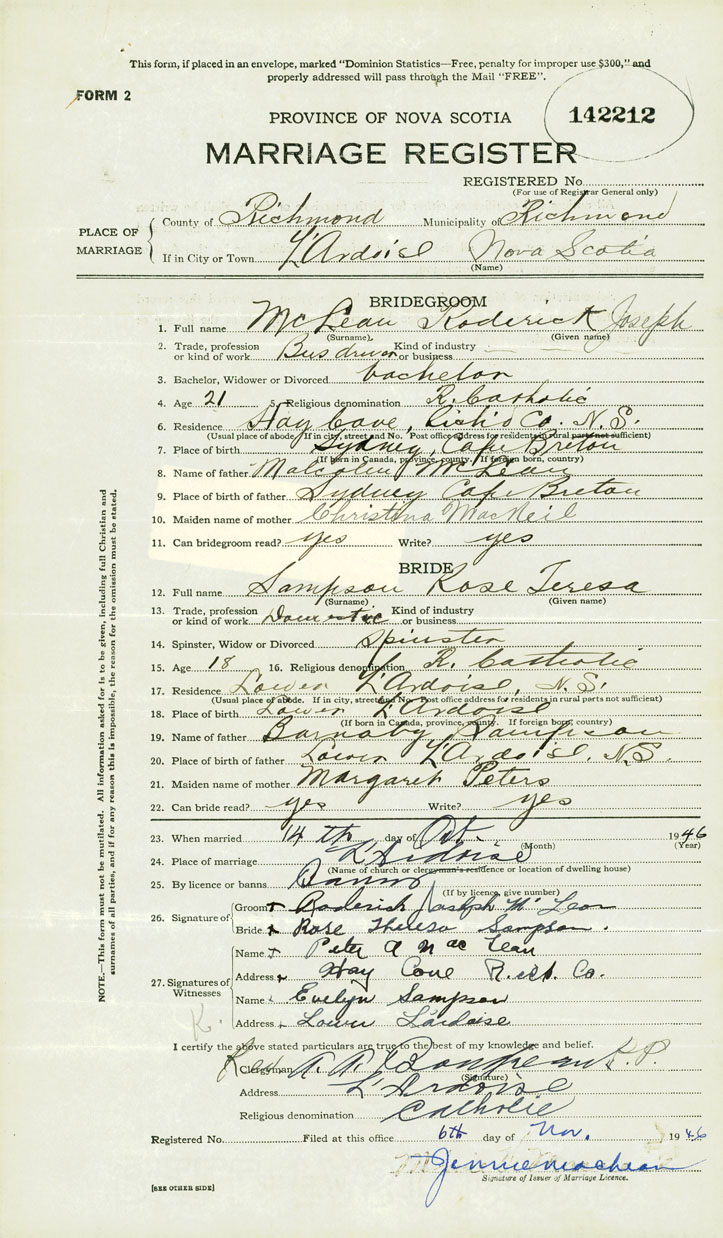 This form, if placed in an envelope, marked "Dominion Statistics—Free, penalty for improper use $300," and
properly addressed will pass through the Mail "FREE".
FORM 2
142212
PROVINCE OF NOVA SCOTIA
MARRIAGE REGISTER
REGISTERED No.
(For use of Registrar General only)
PLACE OF MARRIAGE
County of Richmond Municipality of Richmond
If in City or Town L'Ardoise Nova Scotia
(Name)
BRIDEGROOM
1. Full name McLean Roderick Joseph
(Surname) (Given name)
2. Trade, profession or kind of work Bus driver Kind of industry or business
3. Bachelor, Widower or Divorced bachelor
4. Age 21 5. Religious denomination R. Catholic
6. Residence Hay Cove, Rich'd Co. N.S.
(Usual place of abode. If in city, street and No. Post office address for residents in rural parts not sufficient)
7. Place of birth Sydney, Cape Breton
(If born in Canada, province, county. If foreign born, country)
8. Name of father Malcolm McLean
9. Place of birth of father Sydney Cape Breton
10. Maiden name of mother Christina MacNeil
11. Can bridegroom read? yes Write? yes
BRIDE
12. Full name Sampson Rose Teresa
(Surname) (Given name)
13. Trade, profession or kind of work Domestic Kind of industry or business
14. Spinster, Widow or Divorced Spinster
15. Age 18 16. Religious denomination R. Catholic
17. Residence Lower L'Ardoise, N.S.
(Usual place of abode. If in city, street and No. Post office address for residents in rural parts not sufficient)
18. Place of birth Lower L'Ardoise
(If born in Canada, province, county. If foreign born, country)
19. Name of father Barnaby Sampson
20. Place of birth of father Lower L'Ardoise, N.S.
21. Maiden name of mother Margaret Peters
22. Can bride read? yes Write? yes
23. When married 14th day of Oct. 1946
(Month) (Year)
24. Place of marriage L'Ardoise
(Name of church or clergyman's residence or location of dwelling house)
25. By licence or banns Banns
(If by licence, give number)
26. Signature of
Groom Roderick Joseph McLean
Bride Rose Theresa Sampson.
27. Signatures of Witnesses
Name Peter A MacLean
Address Hay Cove Rich. Co.
Name Evelyn Sampson
Address Lower L'ardoise
K.
I certify the above stated particulars are true to the best of my knowledge and belief.
Clergyman Rev. A. A. P.P.
(Signature)
Address L'Ardoise
Religious denomination Catholic
Registered No. Filed at this office 6th day of Nov. 1946
Jennie MacLean
Signature of Issuer of Marriage Licence.
[SEE OTHER SIDE]
NOTE.—This form must not be mutilated. All information asked for is to be given, including full Christian and
surnames of all parties, and if for any reason this is impossible, the reason for the omission must be stated.